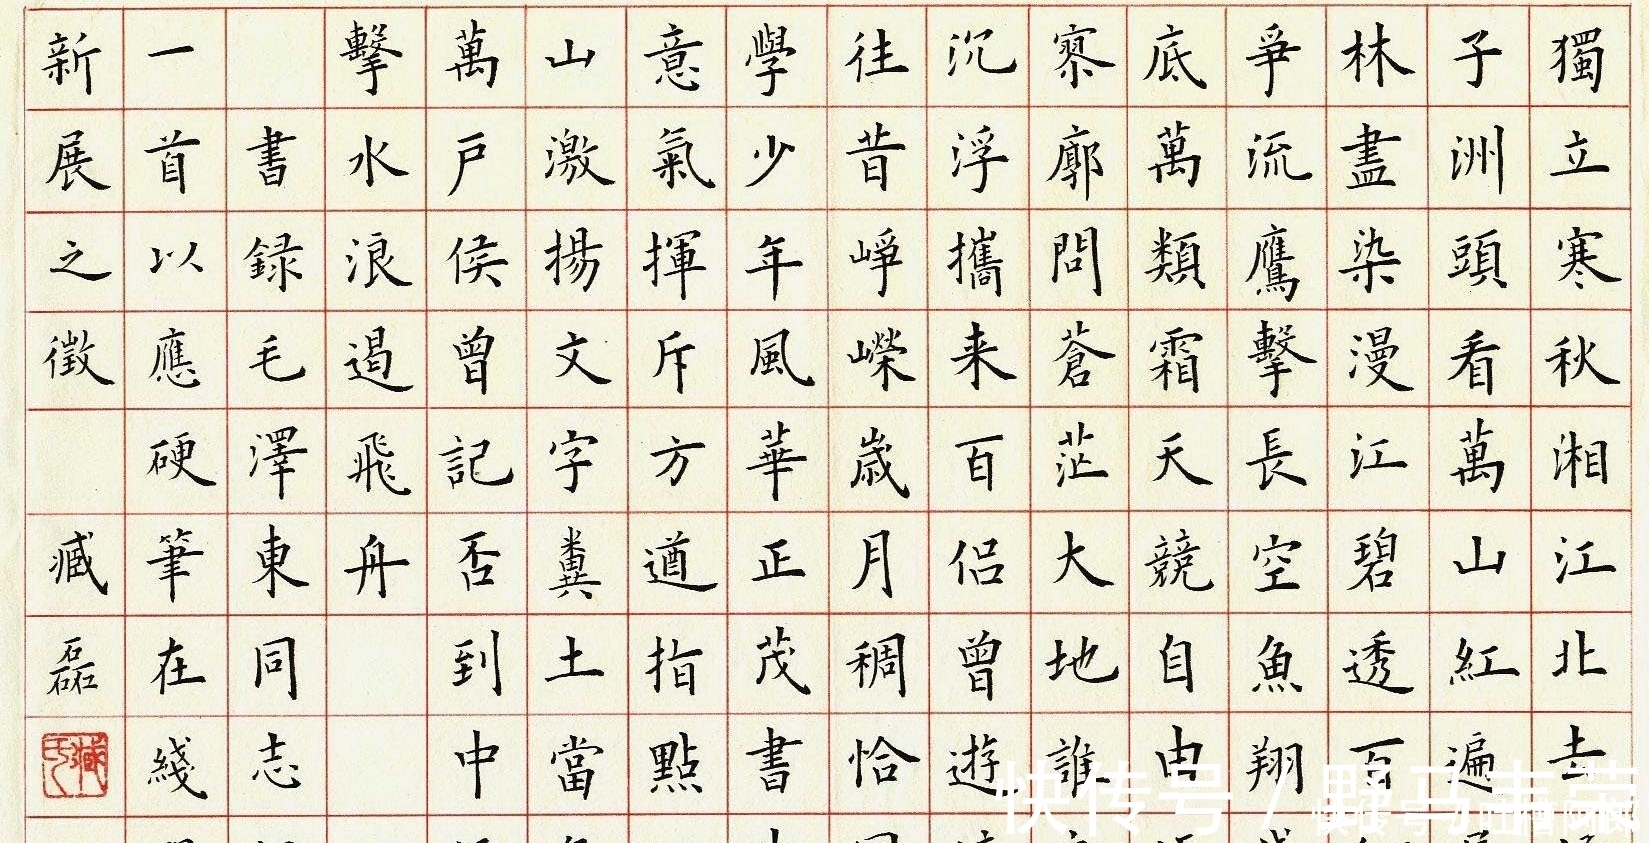 獨立寒秋湘江北去
子洲頭看萬山紅遍
林盡染漫江碧透百
爭流鷹擊長空魚翔
底萬類霜天競自由
寥廓問蒼茫大地誰
沉浮攜来百侣曾遊
往昔崢嶸歲月稠恰
學少年風華正茂書
意氣揮斥方遒指點
山激揚文字糞土當
萬戶侯曾記否到中
擊水浪遏飛舟
書録毛澤東同志
一首以應硬筆在綫
新展之徵 臧磊
臧氏
快传号 /